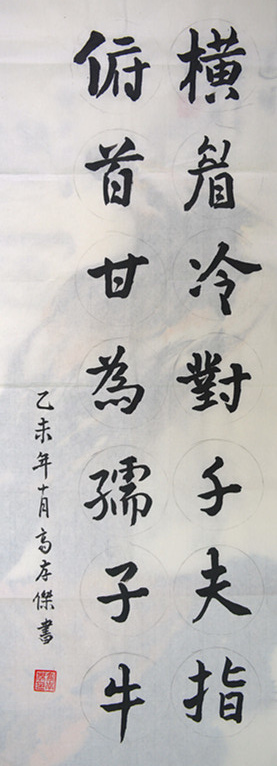 橫眉冷對千夫指
俯首甘為孺子牛
乙未年十月高存傑書